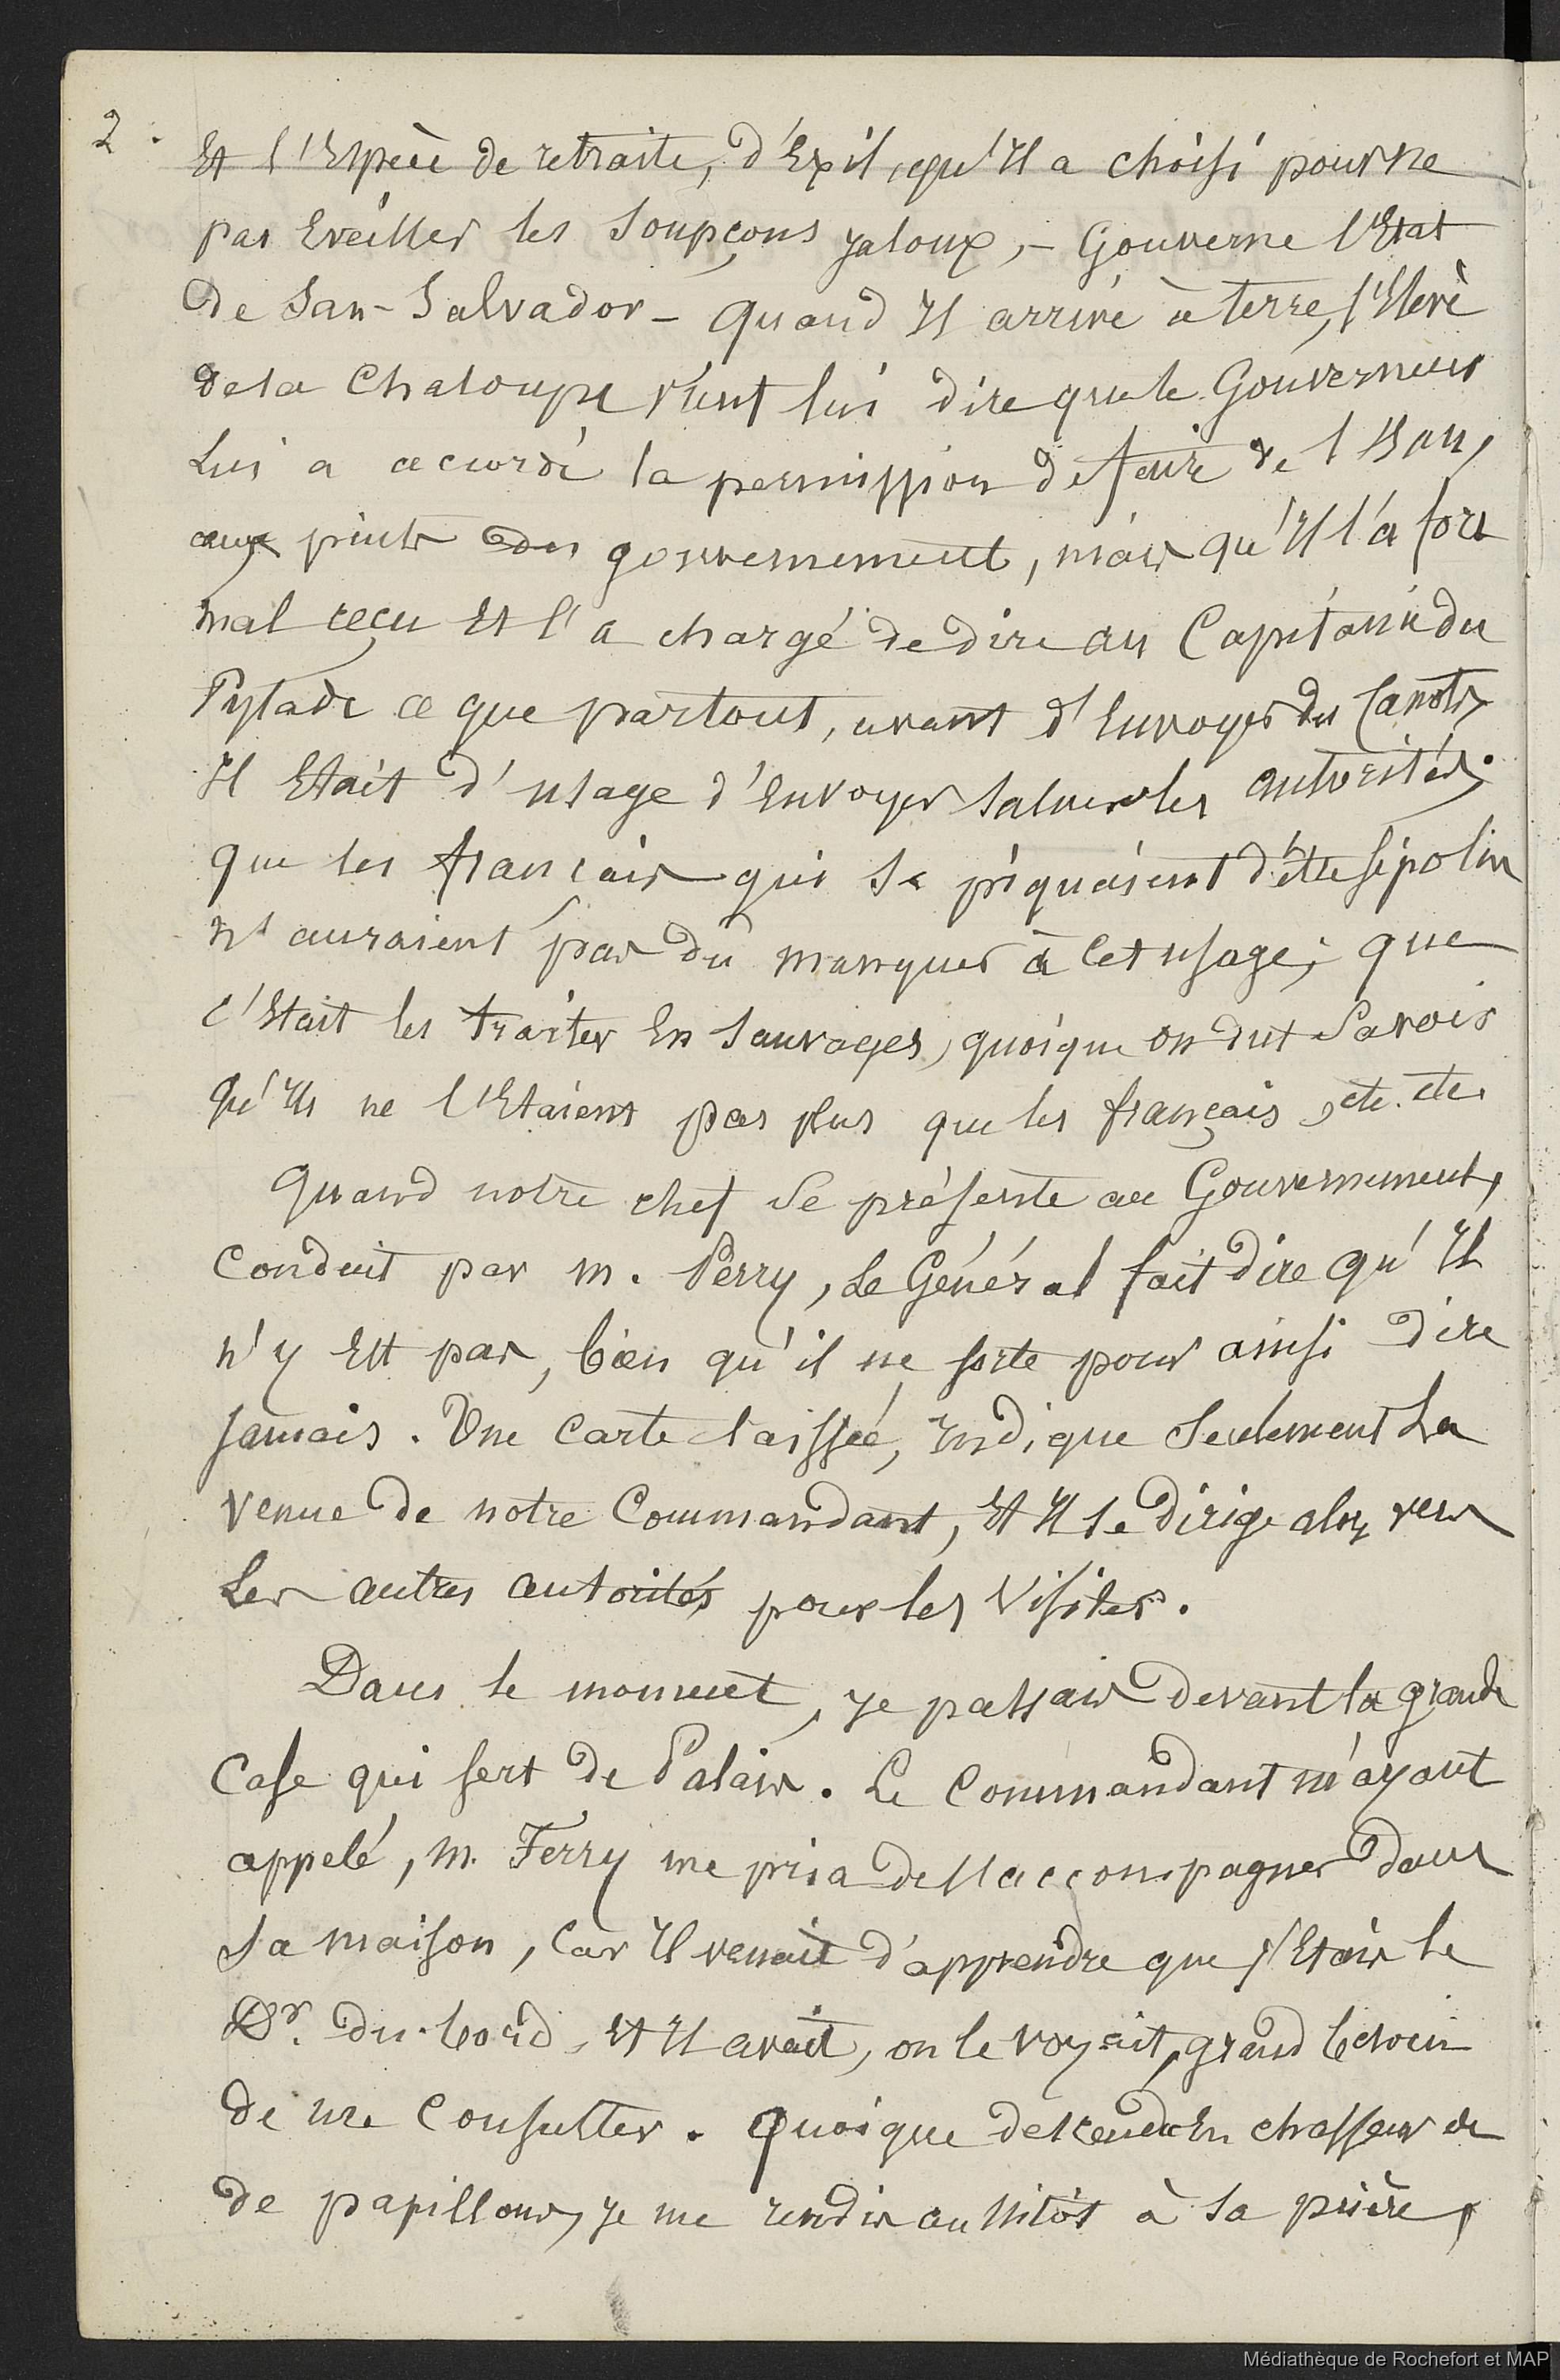 2.
Et l'Espèce de retraite, d'Exil, qu'Il a choisi pour ne
pas Eveiller les soupçons jaloux, - Gouverne l'Etat
de San-Salvador - Quand Il arrive à terre, l'Elève
de la Chaloupe vient lui dire que le Gouverneur
Lui a accordé la permission de faire de l'Eau,
aux puits du gouvernement, mais qu'Il l'a fort
mal reçu Et l'a chargé de dire au Capitaine du
Pylade ce que partout, avant d'Envoyer des Canots,
Il Etait d'usage d'Envoyer saluer les autorités;
que les français qui se piquaient d'être si polis
n'auraient pas du manquer à cet usage; que
c'Etait les traiter En sauvages, quoique on dut savoir
qu'Ils ne l'Etaient pas plus que les français, etc. etc
Quand notre chef se présente au Gouvernement,
conduit par m. Perry, Le Général fait dire qu'Il
n'y Est pas, bien qu'il ne sorte pour ainsi dire
jamais. Une Carte laissée, Indique seulement La
venue de notre Commandant, Et Il se dirige alors vers
Les autres autorités pour les visiter.
Dans le moment, je passais devant la grande
Case qui sert de Palais. Le Commandant m'ayant
appelé, m. Ferry me pria de l'accompagner dans
sa maison, car Il venait d'apprendre que j'Etais le
Dr. du bord, Et Il avait, on le voyait, grand besoin
de me Consulter. Quoique descendu En chasseur de
de papillons, je me rendis aussitôt à sa prière,
Médiathèque de Rochefort et MAP